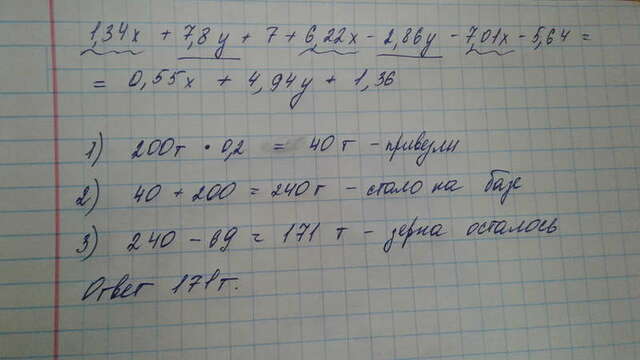 1,34x + 7,8y + 7 + 6,22x - 2,86y - 7,01x - 5,64 =
= 0,55x + 4,94y + 1,36
1) 200т · 0,2 = 40 т - привезли
2) 40 + 200 = 240 т - стало на базе
3) 240 - 69 = 171 т - зерна осталось
Ответ 171 т.